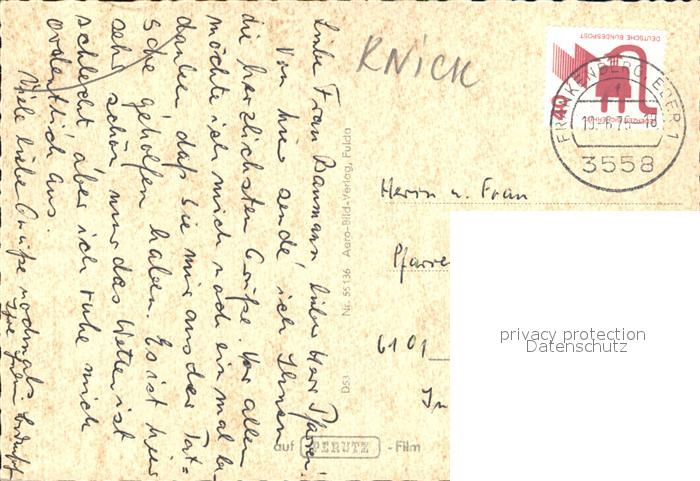 Liebe Frau Baumann lieber Herr Pfarrer!
Von hier sende ich Ihnen
die herzlichsten Grüße. Vor allem
möchte ich mich noch ein mal be-
danken daß Sie mir aus der Pat=
sche geholfen haben. Es ist hier
sehr schön nur das Wetter ist
schlecht, aber ich ruhe mich
ordentlich aus.
Viele liebe Grüße nochmals
Ihre Frau
KNICK
Nr. 55136 Aero-Bild-Verlag, Fulda
D53
auf PERUTZ - Film
DEUTSCHE BUNDESPOST
40
FRANKENBERG, EDER 1
3558
Herrn u. Frau
Pfarre
6101
privacy protection
Datenschutz